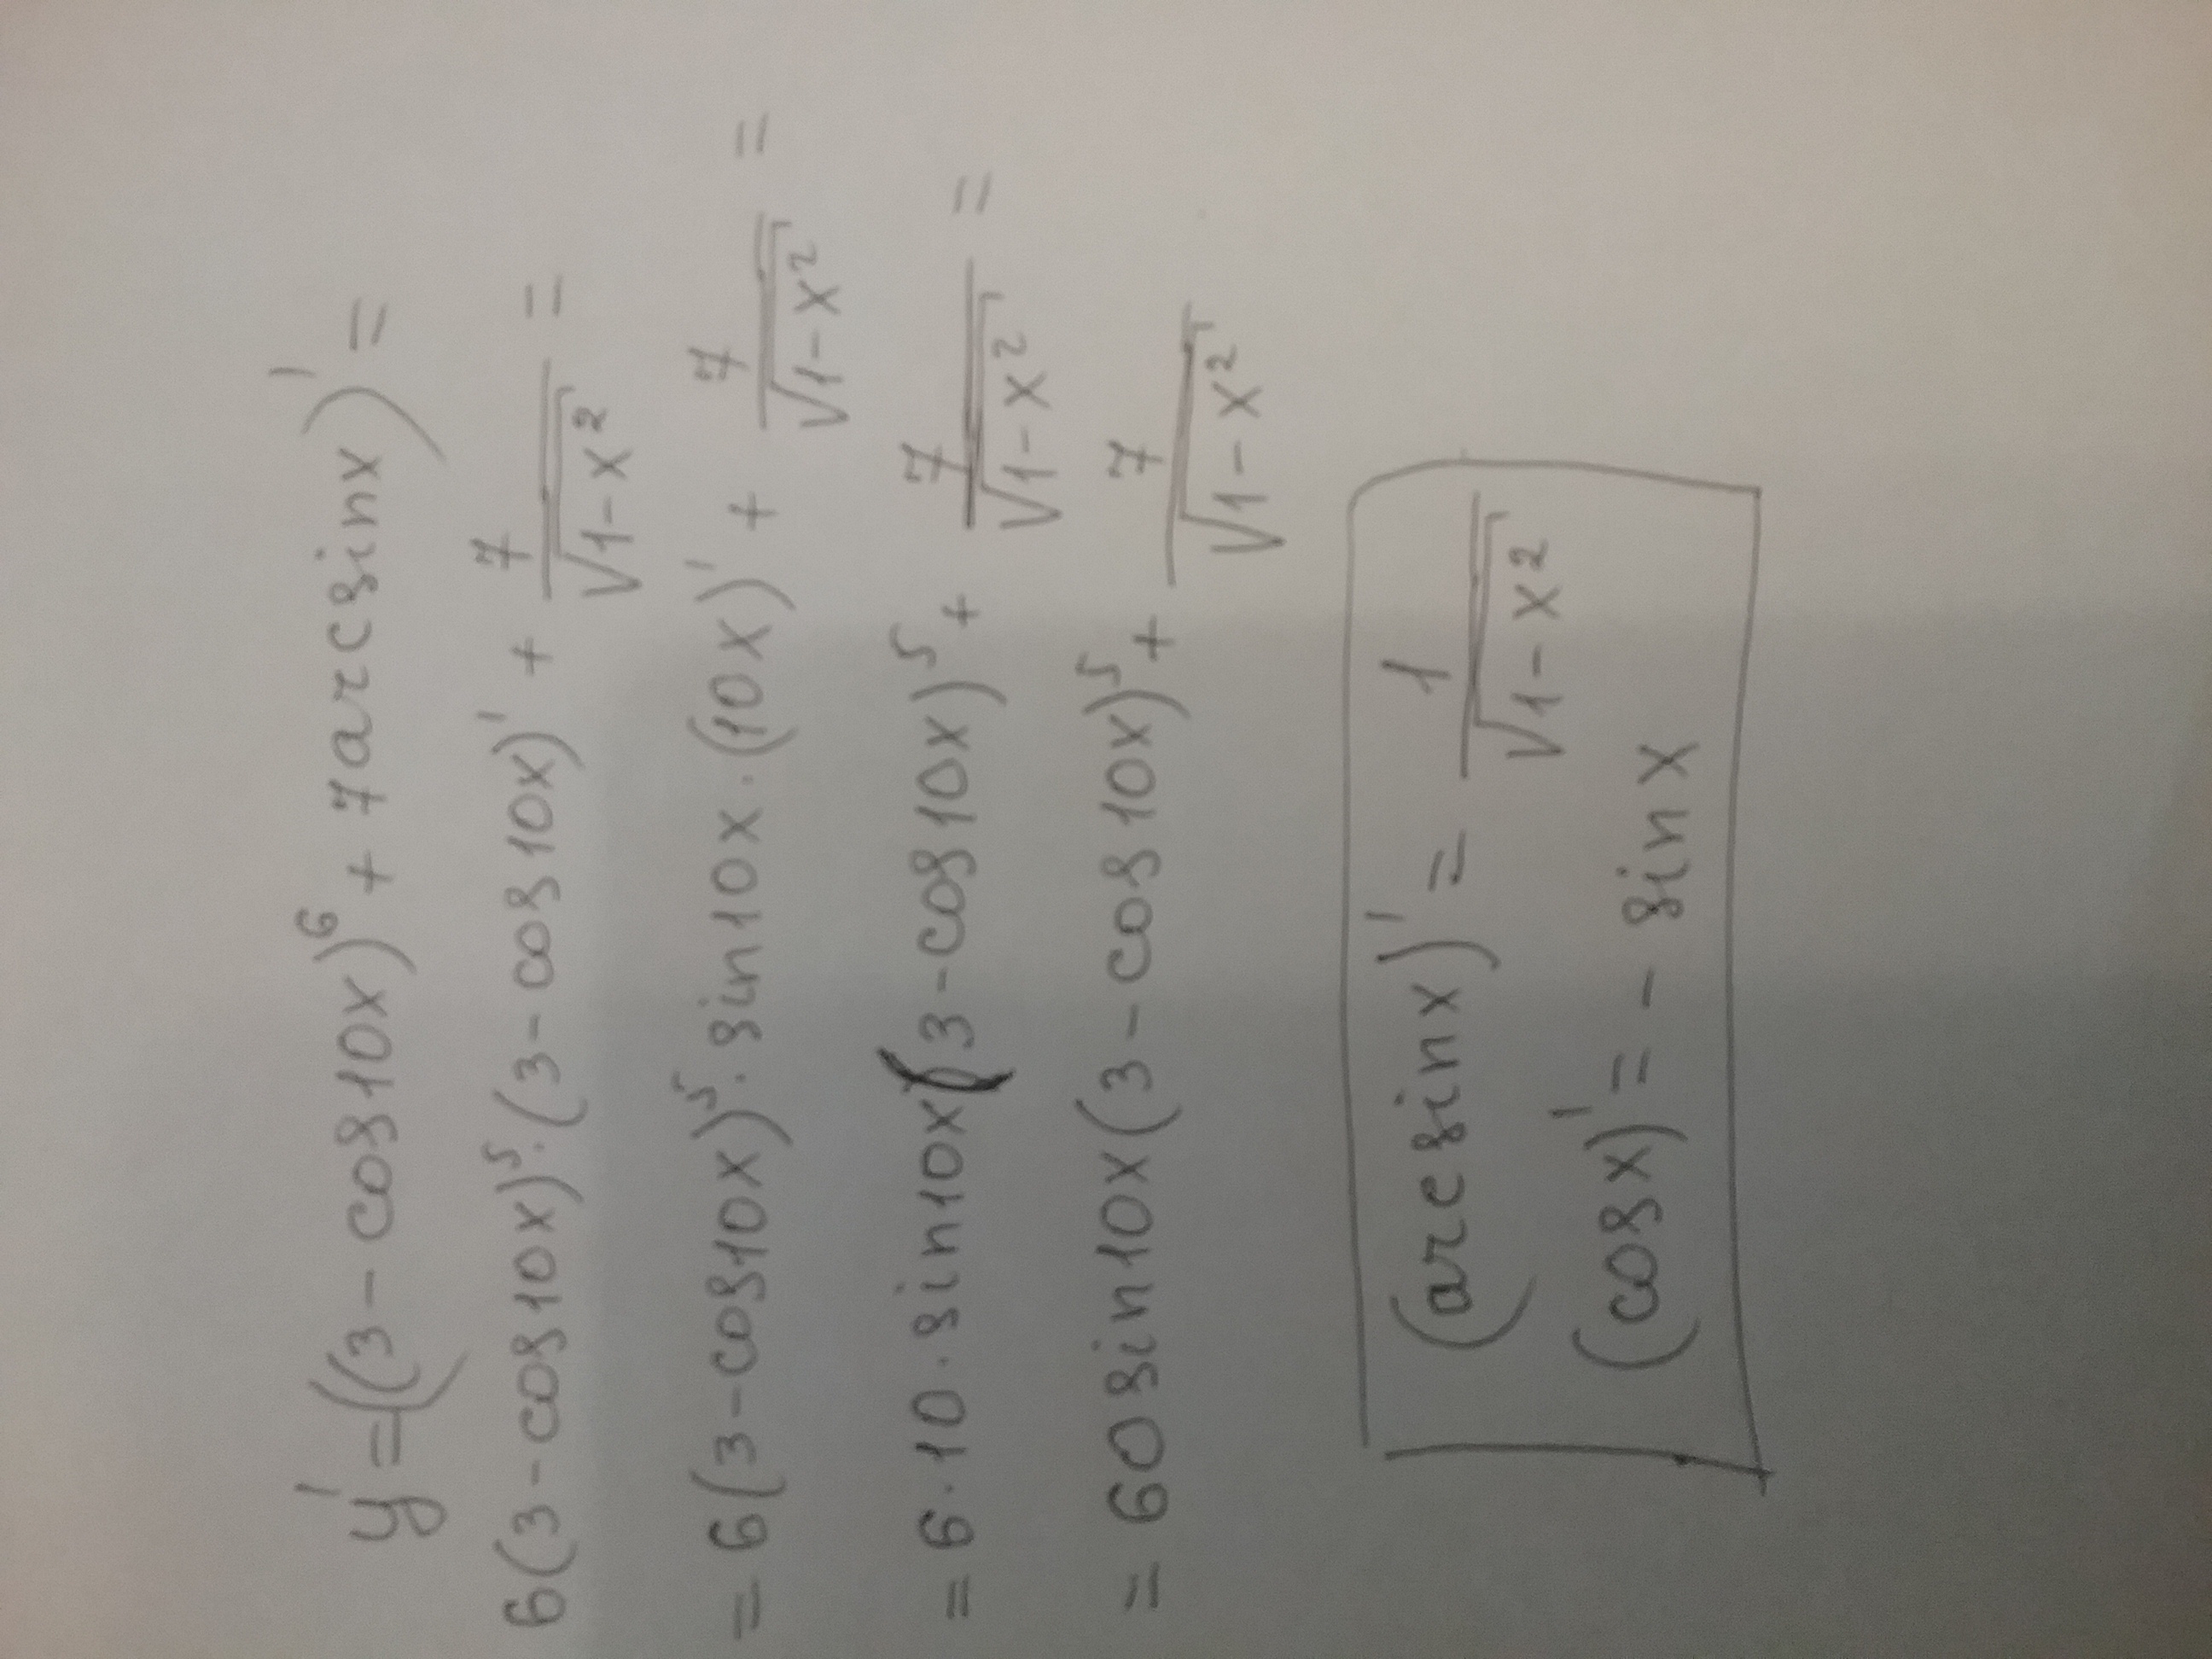 y' = ((3 - cos10x)⁶ + 7arcsinx)' =
6(3 - cos10x)⁵·(3 - cos10x)' + 7/√(1-x²) =
= 6(3 - cos10x)⁵·sin10x·(10x)' + 7/√(1-x²) =
= 6·10·sin10x(3 - cos10x)⁵ + 7/√(1-x²) =
= 60sin10x(3 - cos10x)⁵ + 7/√(1-x²)
(arcsinx)' = 1/√(1-x²)
(cosx)' = - sinx